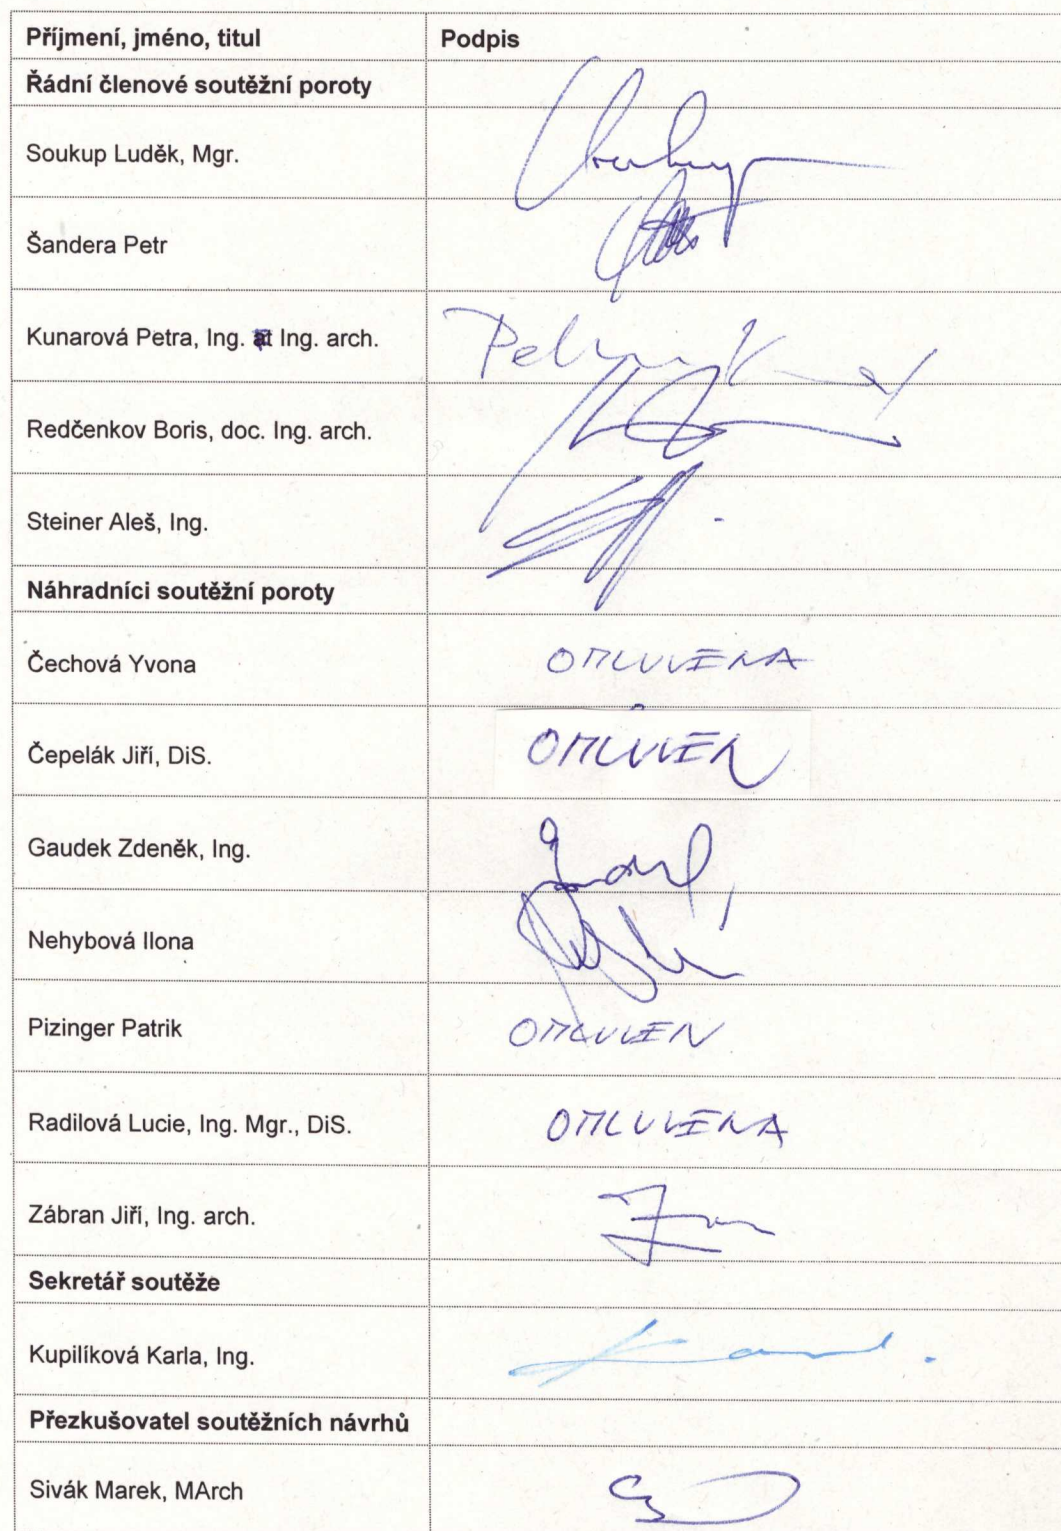 Příjmení, jméno, titul Podpis
Řádní členové soutěžní poroty
Soukup Luděk, Mgr.
Šandera Petr
Kunarová Petra, Ing. Ing. arch.
Redčenkov Boris, doc. Ing. arch.
Steiner Aleš, Ing.
Náhradníci soutěžní poroty
Čechová Yvona OMLUVENA
Čepelák Jiří, DiS. OMLUVEN
Gaudek Zdeněk, Ing.
Nehybová Ilona
Pizinger Patrik OMLUVEN
Radilová Lucie, Ing. Mgr., DiS. OMLUVENA
Zábran Jiří, Ing. arch.
Sekretář soutěže
Kupilíková Karla, Ing.
Přezkušovatel soutěžních návrhů
Sivák Marek, MArch